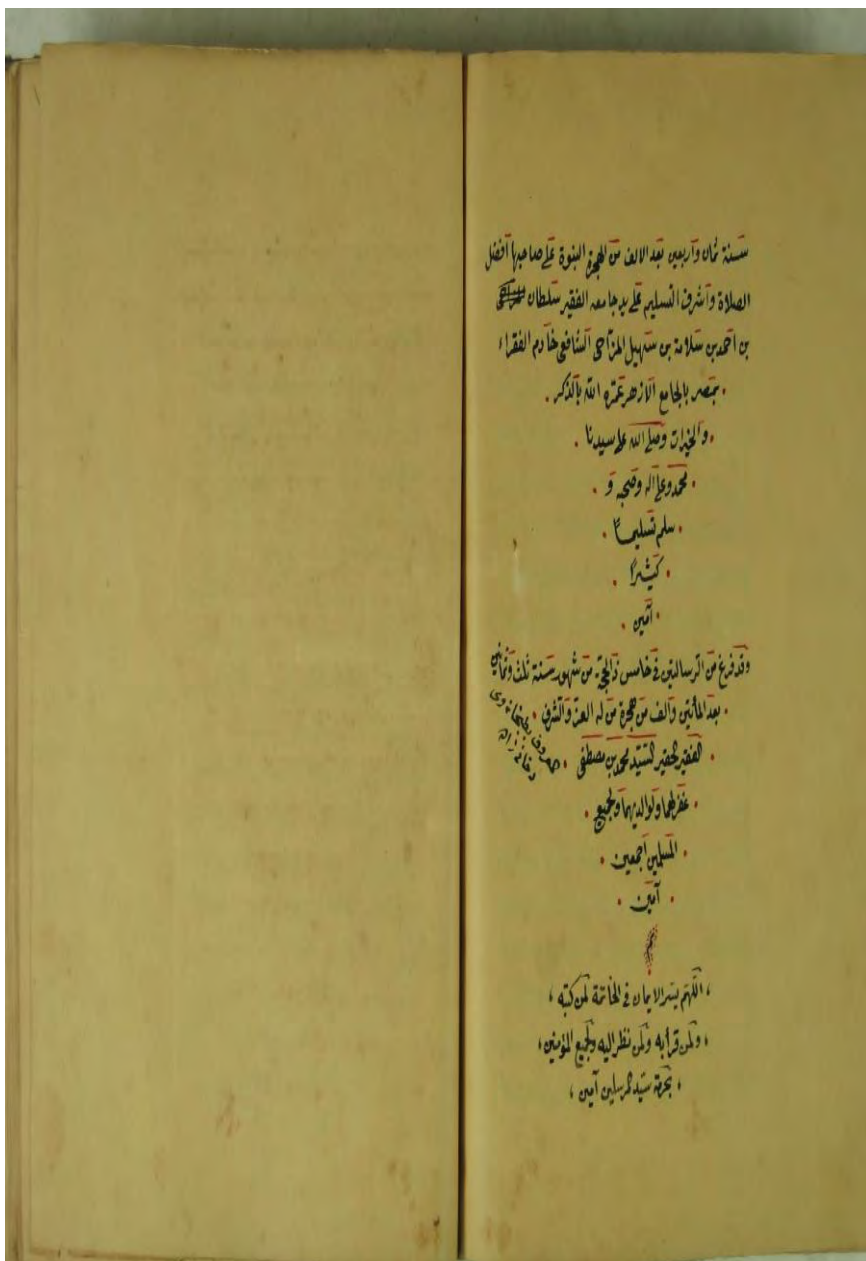 سنة ثمان واربعين بعد الالف من الهجرة النبوة على صاحبها افضل
الصلاة واشرف التسليم على يد جامعه الفقير سلطان
بن احمد بن سلامة بن سهيل المزاحى الشافعى خادم الفقراء
بمصر بالجامع الازهر عمّره الله بالذكر
والخيرات وصلى الله على سيدنا
محمد وعلى اله وصحبه و
سلم تسليماً
كثيراً
آمين
وقد فرغ من الرسالتين فى خامس ذالحجة من شهور سنة ثلث وثمانين
بعد المأتين والف من هجرة من له العز والشرف
الفقير الحقير السيّد محمد بن مصطفى
غفر لهما ولوالديهما ولجميع
المسلمين اجمعين
آمين
اللهم يسر الايمان فى الخاتمة لمن كتبه
ولمن قرأ به ولمن نظر اليه ولجميع المؤمنين
بحرمة سيّد المرسلين آمين